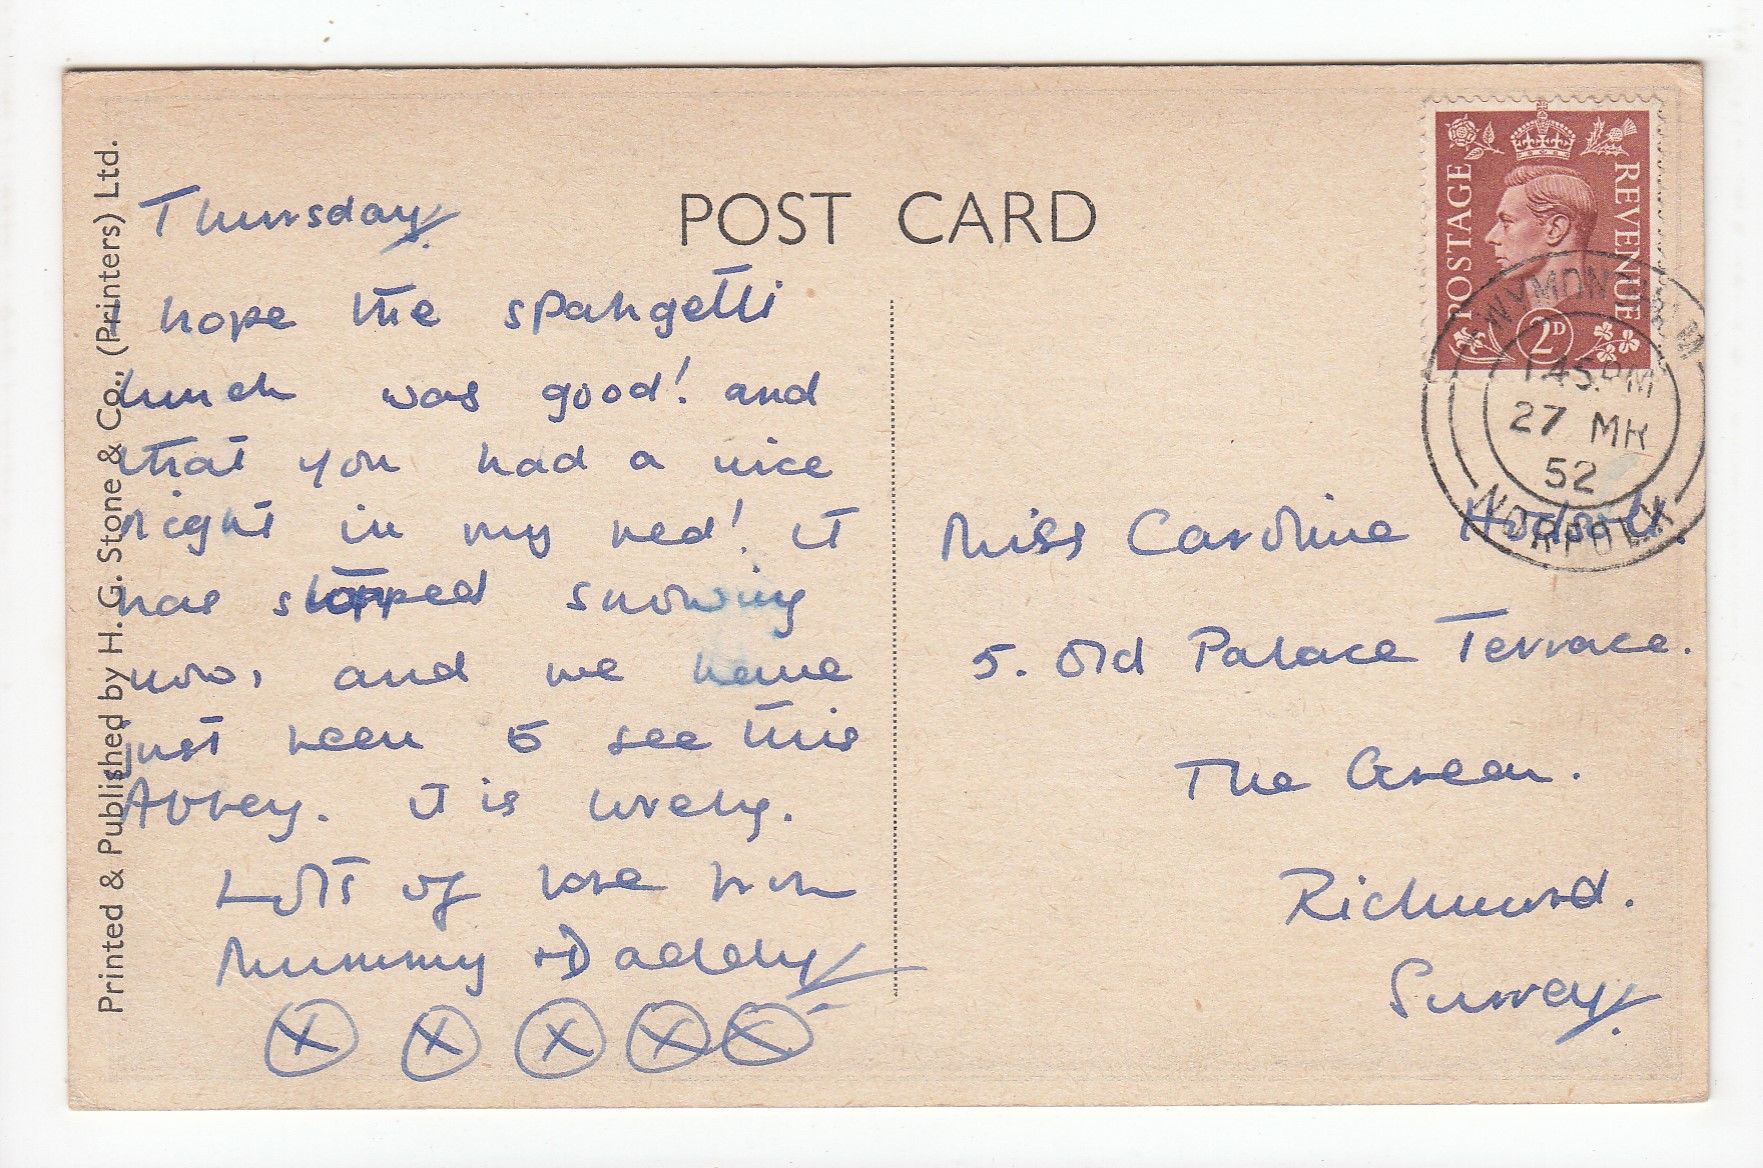 POST CARD
Thursday
I hope the spahgetti
lunch was good! and
that you had a nice
night in my bed! it
has stopped snowing
now, and we have
just been to see this
Abbey. it is lovely.
Lots of love from
Mummy + Daddy
X X X X X
Printed & Published by H. G. Stone & Co., (Printers) Ltd.
POSTAGE
REVENUE
2D
WYMONDHAM
1 45 PM
27 MR
52
NORFOLK
Miss Caroline
5. Old Palace Terrace.
The Green.
Richmond.
Surrey